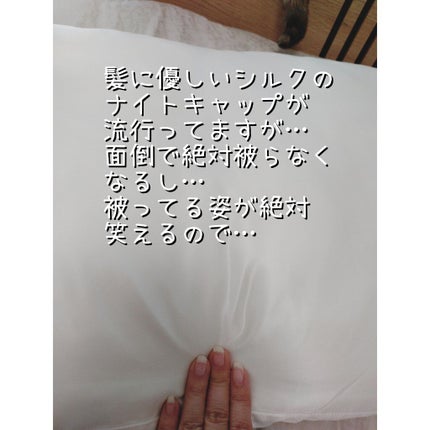 髪に優しいシルクの
ナイトキャップが
流行ってますが…
面倒で絶対被らなく
なるし…
被ってる姿が絶対
笑えるので…